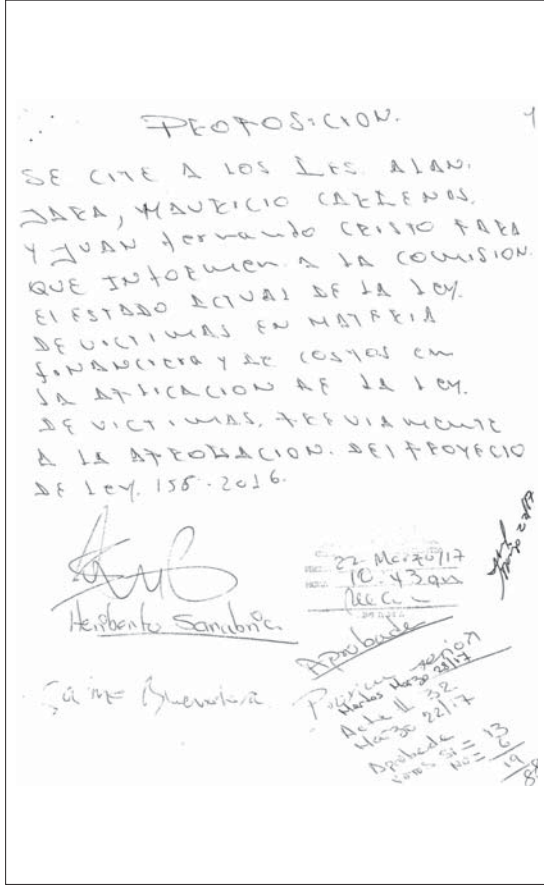 PROPOSICION. 1
SE CITE A LOS DRES. ALAN.
JARA, MAURICIO CARDENAS.
Y JUAN fernando CRISTO PARA
QUE INformen. A LA COMISION.
EL ESTADO ACTUAL DE LA LEY.
DE VICTIMAS EN MATERIA
fINANCIERA Y DE COSTOS en
LA APLICACION DE LA LEY.
DE VICTIMAS. PREVIAMENTE
A LA APROBACION. DEL PROYECTO
DE LEY. 158-2016.
Heriberto Sanabria
22 Marzo/17
10:43 am
Aprobada
Jaime Buenahora
Martes Marzo 28/17
Acta # 32
Marzo 22/17
Aprobada
Votos SI = 13
NO = 6
19